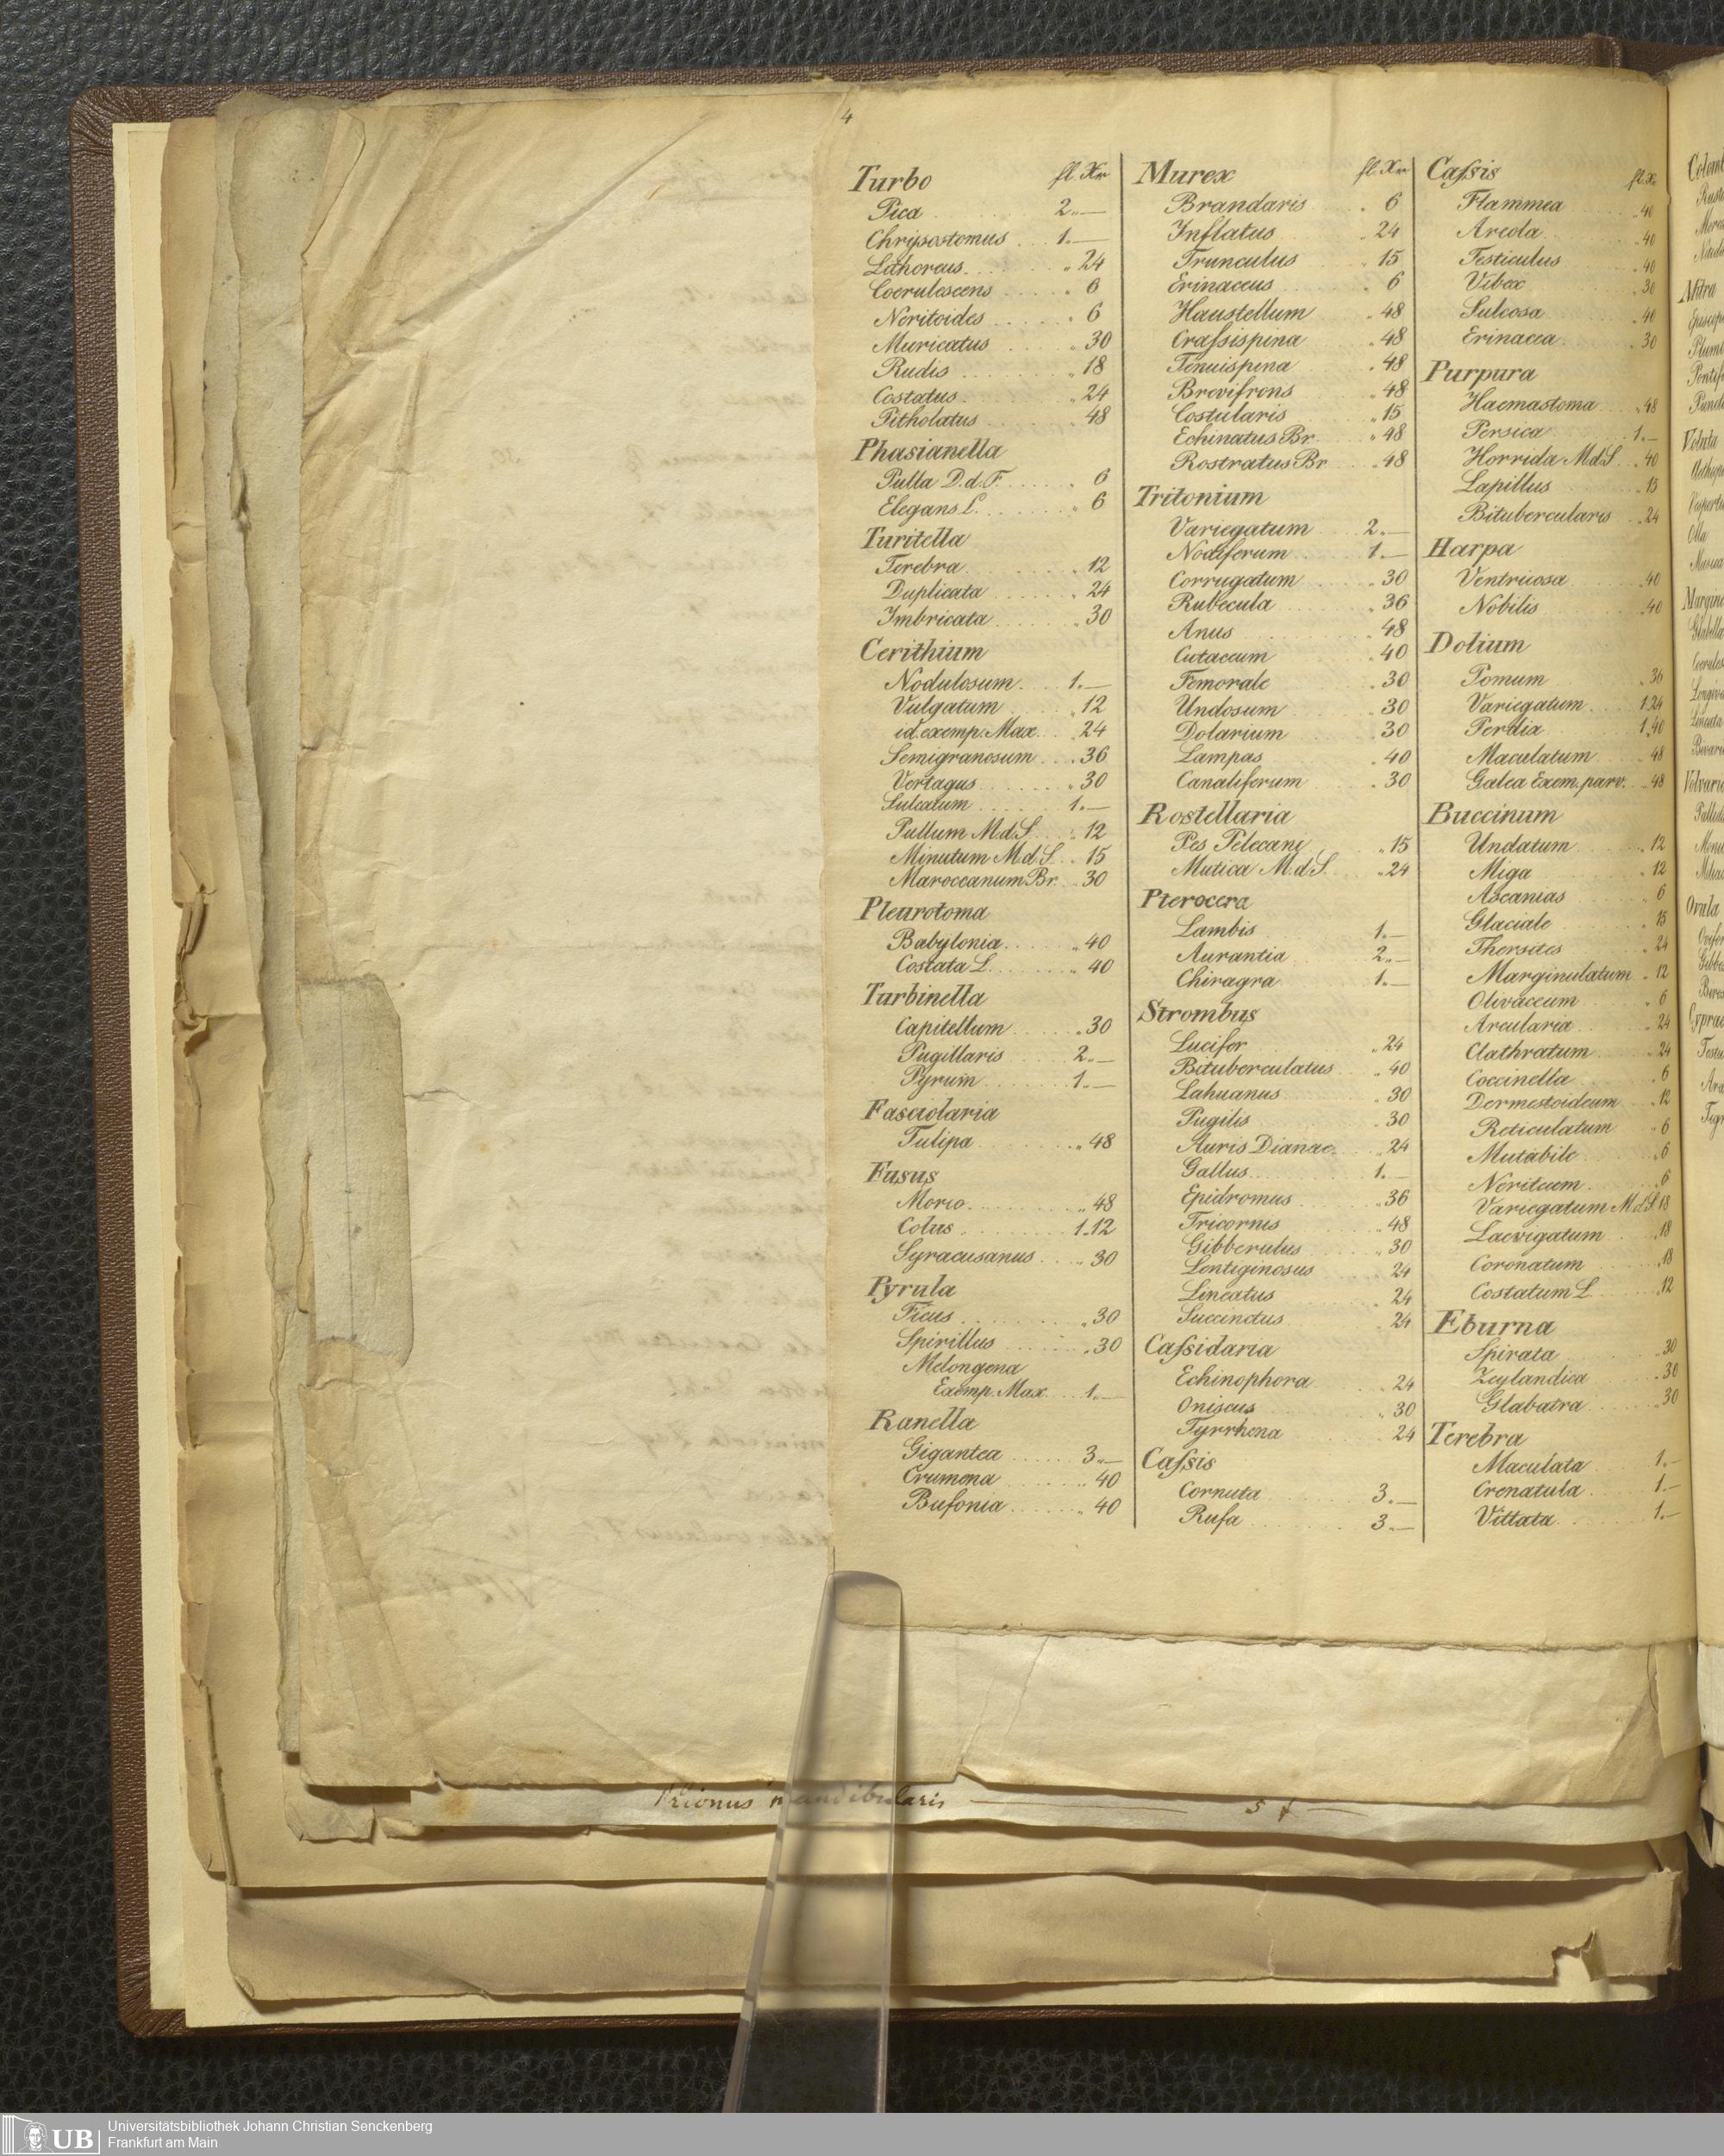 4
Turbo fl. Xr
Pica 2.—
Chrysostomus 1.—
Lithoreus 24
Coerulescens 6
Neritoides 6
Muricatus 30
Rudis 18
Costatus 24
Pitholatus 48
Phasianella
Pulla D.d.F. 6
Elegans L. 6
Turitella
Terebra 12
Duplicata 24
Imbricata 30
Cerithium
Nodulosum 1.—
Vulgatum 12
id. exemp. Max. 24
Semigranosum 36
Vertagus 30
Sulcatum 1.—
Pullum M.d.S. 12
Minutum M.d.S. 15
Maroccanum Br. 30
Pleurotoma
Babylonia 40
Costata L. 40
Turbinella
Capitellum 30
Pugillaris 2.—
Pyrum 1.—
Fasciolaria
Tulipa 48
Fusus
Morio 48
Colus 1.12
Syracusanus 30
Pyrula
Ficus 30
Spirillus 30
Melongena
Exemp. Max. 1.—
Ranella
Gigantea 3.—
Crumena 40
Bufonia 40
Murex fl. Xr
Brandaris 6
Inflatus 24
Trunculus 15
Erinaceus 6
Haustellum 48
Craſsispina 48
Tenuispina 48
Brevifrons 48
Costularis 15
Echinatus Br. 48
Rostratus Br. 48
Tritonium
Variegatum 2.—
Nodiferum 1.—
Corrugatum 30
Rubecula 36
Anus 48
Cutaceum 40
Femorale 30
Undosum 30
Dolarium 30
Lampas 40
Canaliferum 30
Rostellaria
Pes Pelecani 15
Mutica M.d.S. 24
Pterocera
Lambis 1.—
Aurantia 2.—
Chiragra 1.—
Strombus
Lucifer 24
Bituberculatus 40
Lahuanus 30
Pugilis 30
Auris Dianae 24
Gallus 1.—
Epidromus 36
Tricornis 48
Gibberulus 30
Lentiginosus 24
Lineatus 24
Succinctus 24
Caſsidaria
Echinophora 24
Oniscus 30
Tyrrhena 24
Caſsis
Cornuta 3.—
Rufa 3.—
Caſsis fl. Xr
Flammea 40
Areola 40
Testiculus 40
Vibex 30
Sulcosa 40
Erinacea 30
Purpura
Haemastoma 48
Persica 1.—
Horrida M.d.S. 40
Lapillus 15
Bitubercularis 24
Harpa
Ventricosa 40
Nobilis 40
Dolium
Pomum 36
Variegatum 1.24
Perdix 1.40
Maculatum 48
Galea Exem. parv. 48
Buccinum
Undatum 12
Miga 12
Ascanias 6
Glaciale 15
Thersites 24
Marginulatum 12
Olivaceum 6
Arcularia 24
Clathratum 24
Coccinella 6
Dermestoideum 12
Reticulatum 6
Mutabile 6
Neriteum 6
Variegatum M.d.S. 18
Laevigatum 18
Coronatum 18
Costatum L. 12
Eburna
Spirata 30
Zeylandica 30
Glabatra 30
Terebra
Maculata 1.—
Crenatula 1.—
Vittata 1.—
Prionus mandibularis — 5 f —
UB
Universitätsbibliothek Johann Christian Senckenberg
Frankfurt am Main